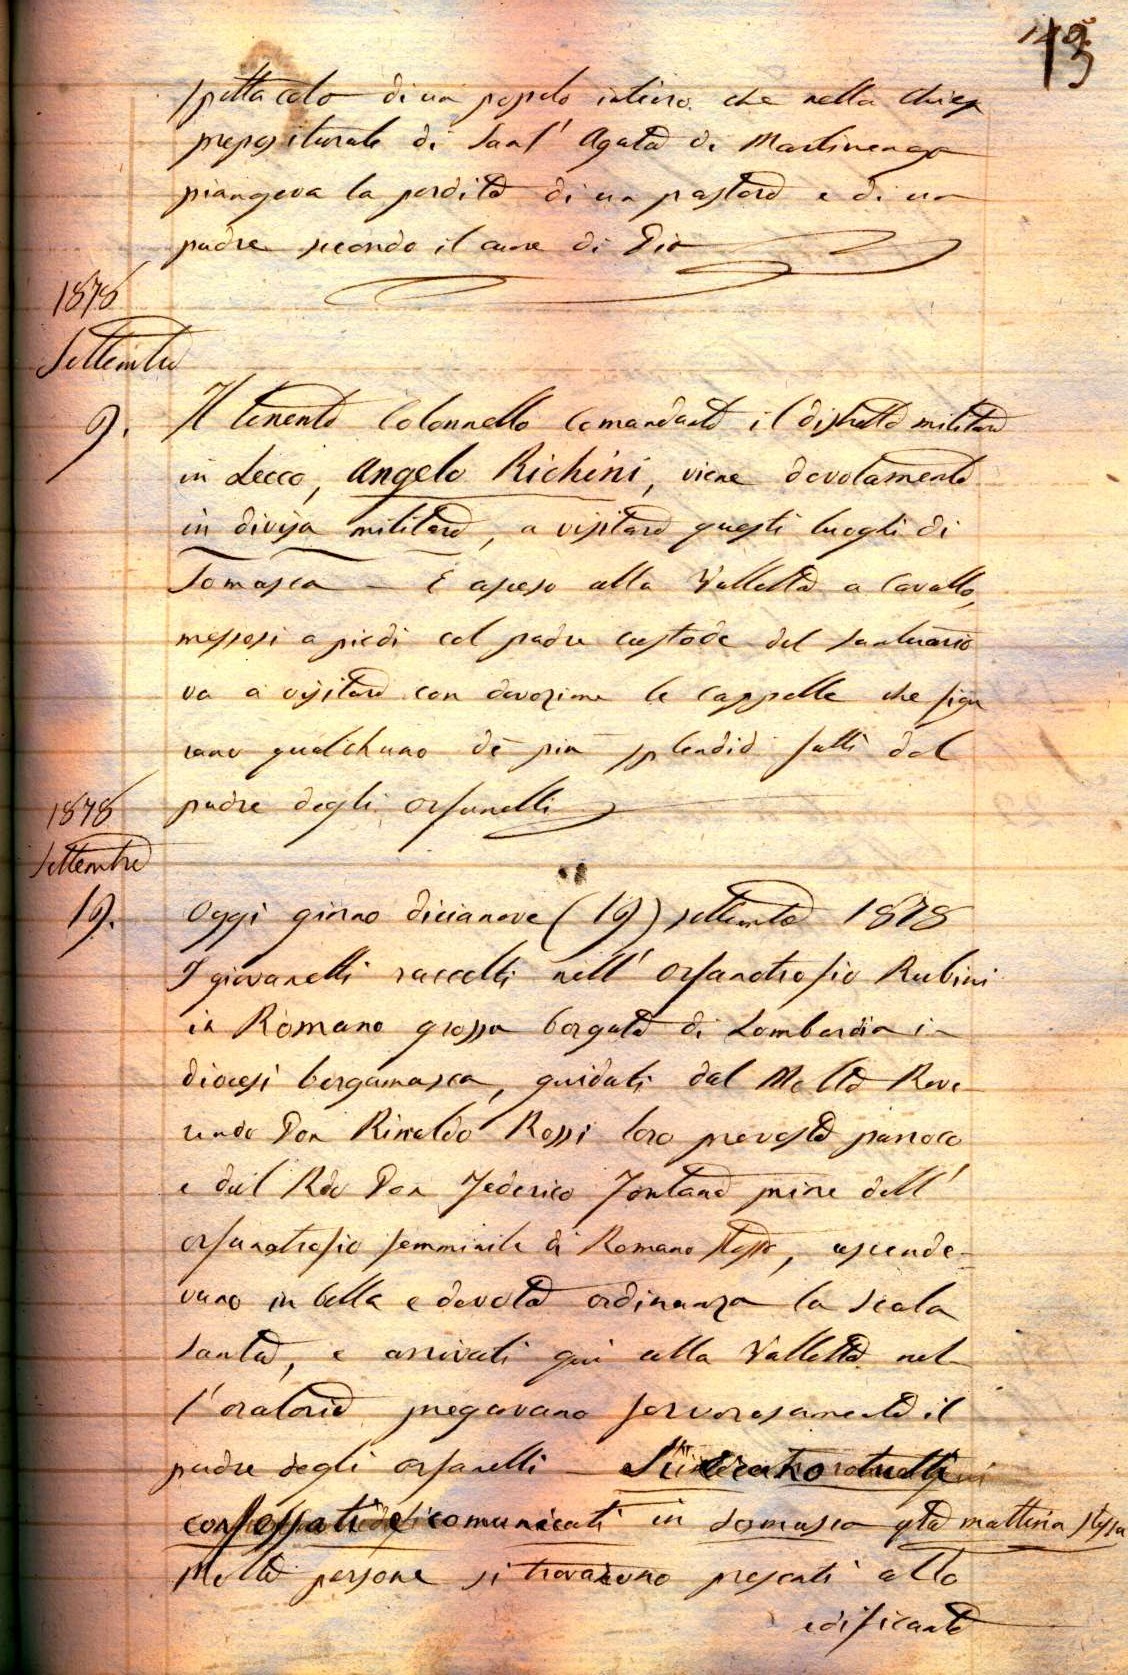 spettacolo di un popolo intiero che nella chiesa
prepositurale di Sant' Agata di Martinengo
piangeva la perdita di un pastore e di un
padre secondo il cuore di Dio
1878
Settembre
9. Il tenente Colonnello Comandante il distretto militare
in Lecco, Angelo Richini, viene devotamente
in divisa militare, a visitare questi luoghi di
Somasca — E asceso alla Valletta a cavallo,
messosi a piedi col padre custode del santuario
va a visitare con devozione le cappelle che figu
rano qualchuno de più splendidi fatti del
padre degli orfanelli
1878
Settembre
19. Oggi giorno dicianove (19) settembre 1878
I giovanetti raccolti nell' Orfanotrofio Rubini
in Romano grossa borgata di Lombardia in
diocesi bergamasca, guidati dal Molto Reve
rendo Don Rinaldo Rossi loro prevosto parroco
e dal Rdo Don Federico Fontana prire dell'
orfanotrofio femminile di Romano stesso, ascende-
vano in bella e devota ordinanza la Scala
Santa, e arrivati qui alla Valletta nel-
l'oratorio pregavano fervorosamente il
padre degli orfanelli — Si erano tutti
confessati e comunicati in Somasca qta mattina stessa
Molte persone si trovarono presenti allo
edificante